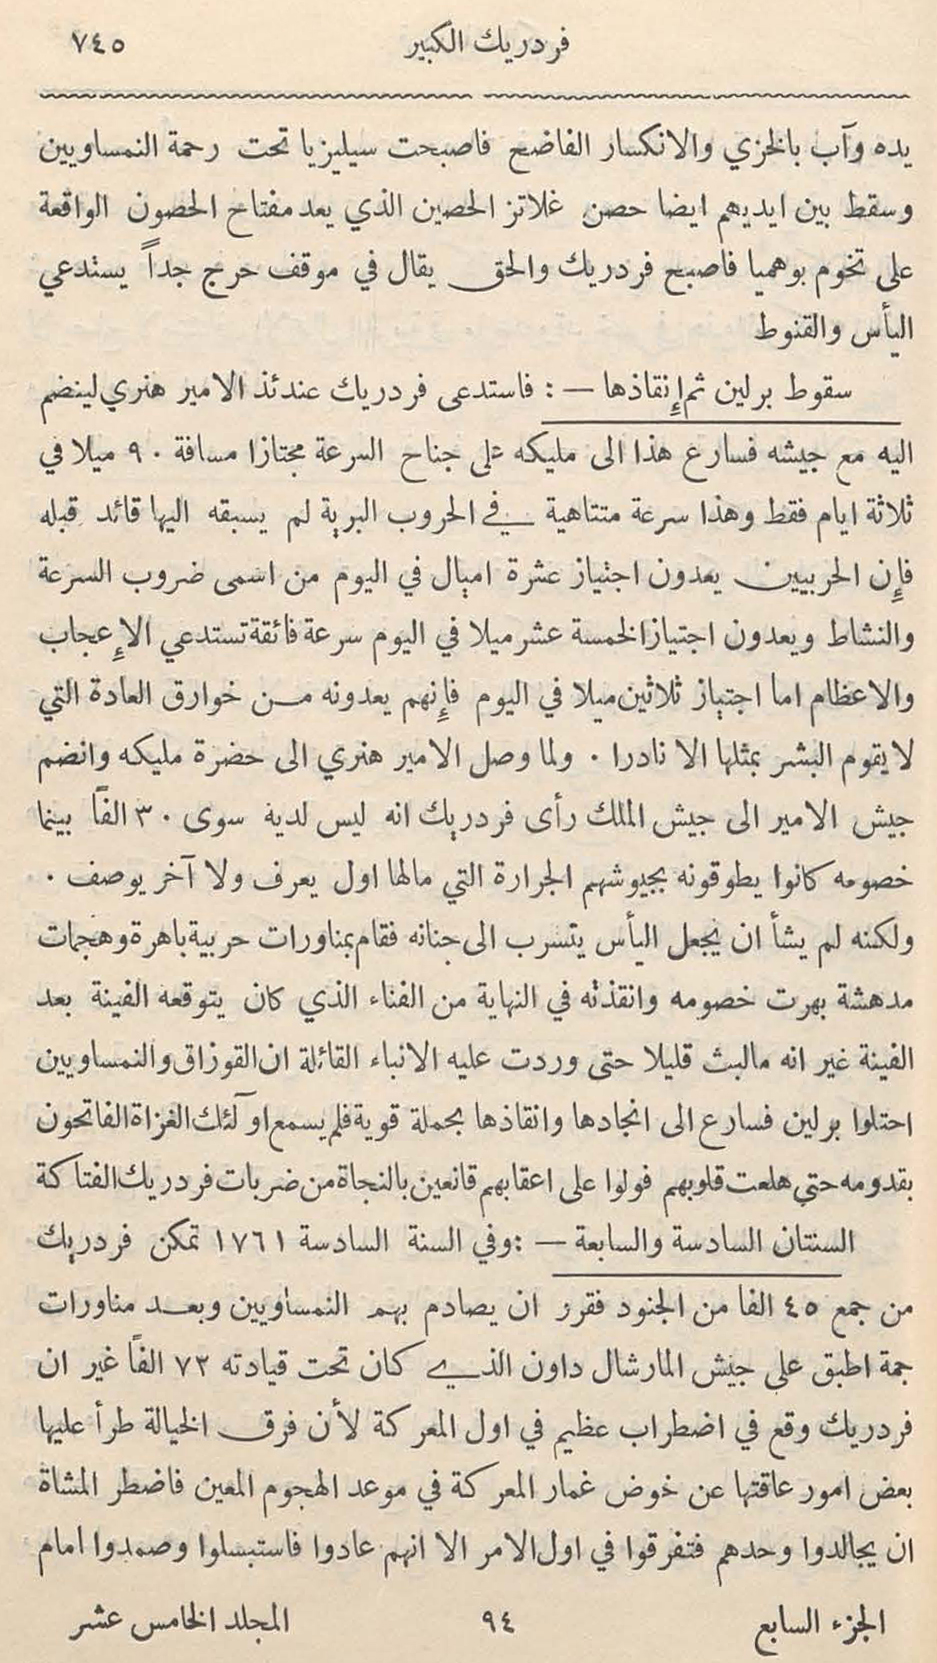 فردريك الكبير
٧٤٥
يده وآب بالخزي والانكسار الفاضح فاصبحت سيليزيا تحت رحمة النمساويين
وسقط بين ايديهم ايضا حصن غلاتز الحصين الذي يعد مفتاح الحصون الواقعة
على تخوم بوهميا فاصبح فردريك والحق يقال في موقف حرج جداً يستدعي
اليأس والقنوط
سقوط برلين ثم إنقاذها — : فاستدعى فردريك عندئذ الامير هنري لينضم
اليه مع جيشه فسارع هذا الى مليكه على جناح السرعة مجتازا مسافة ٩٠ ميلا في
ثلاثة ايام فقط وهذا سرعة متناهية في الحروب البرية لم يسبقه اليها قائد قبله
فإن الحربيين يعدون اجتياز عشرة اميال في اليوم من اسمى ضروب السرعة
والنشاط ويعدون اجتياز الخمسة عشر ميلا في اليوم سرعة فائقة تستدعي الإعجاب
والاعظام اما اجتياز ثلاثين ميلا في اليوم فإنهم يعدونه من خوارق العادة التي
لا يقوم البشر بمثلها الا نادرا ٠ ولما وصل الامير هنري الى حضرة مليكه وانضم
جيش الامير الى جيش الملك رأى فردريك انه ليس لديه سوى ٣٠ الفاً بينما
خصومه كانوا يطوقونه بجيوشهم الجرارة التي مالها اول يعرف ولا آخر يوصف ٠
ولكنه لم يشأ ان يجعل اليأس يتسرب الى جنانه فقام بمناورات حربية باهرة وهجمات
مدهشة بهرت خصومه وانقذته في النهاية من الفناء الذي كان يتوقعه الفينة بعد
الفينة غير انه مالبث قليلا حتى وردت عليه الانباء القائلة ان القوزاق والنمساويين
احتلوا برلين فسارع الى انجادها وانقاذها بحملة قوية فلم يسمع اولئك الغزاة الفاتحون
بقدومه حتى هلعت قلوبهم فولوا على اعقابهم قانعين بالنجاة من ضربات فردريك الفتاكة
السنتان السادسة والسابعة — : وفي السنة السادسة ١٧٦١ تمكن فردريك
من جمع ٤٥ الفا من الجنود فقرر ان يصادم بهم النمساويين وبعد مناورات
جمة اطبق على جيش المارشال داون الذي كان تحت قيادته ٧٣ الفاً غير ان
فردريك وقع في اضطراب عظيم في اول المعركة لأن فرق الخيالة طرأ عليها
بعض امور عاقتها عن خوض غمار المعركة في موعد الهجوم المعين فاضطر المشاة
ان يجالدوا وحدهم فتفرقوا في اول الامر الا انهم عادوا فاستبسلوا وصمدوا امام
الجزء السابع
٩٤
المجلد الخامس عشر